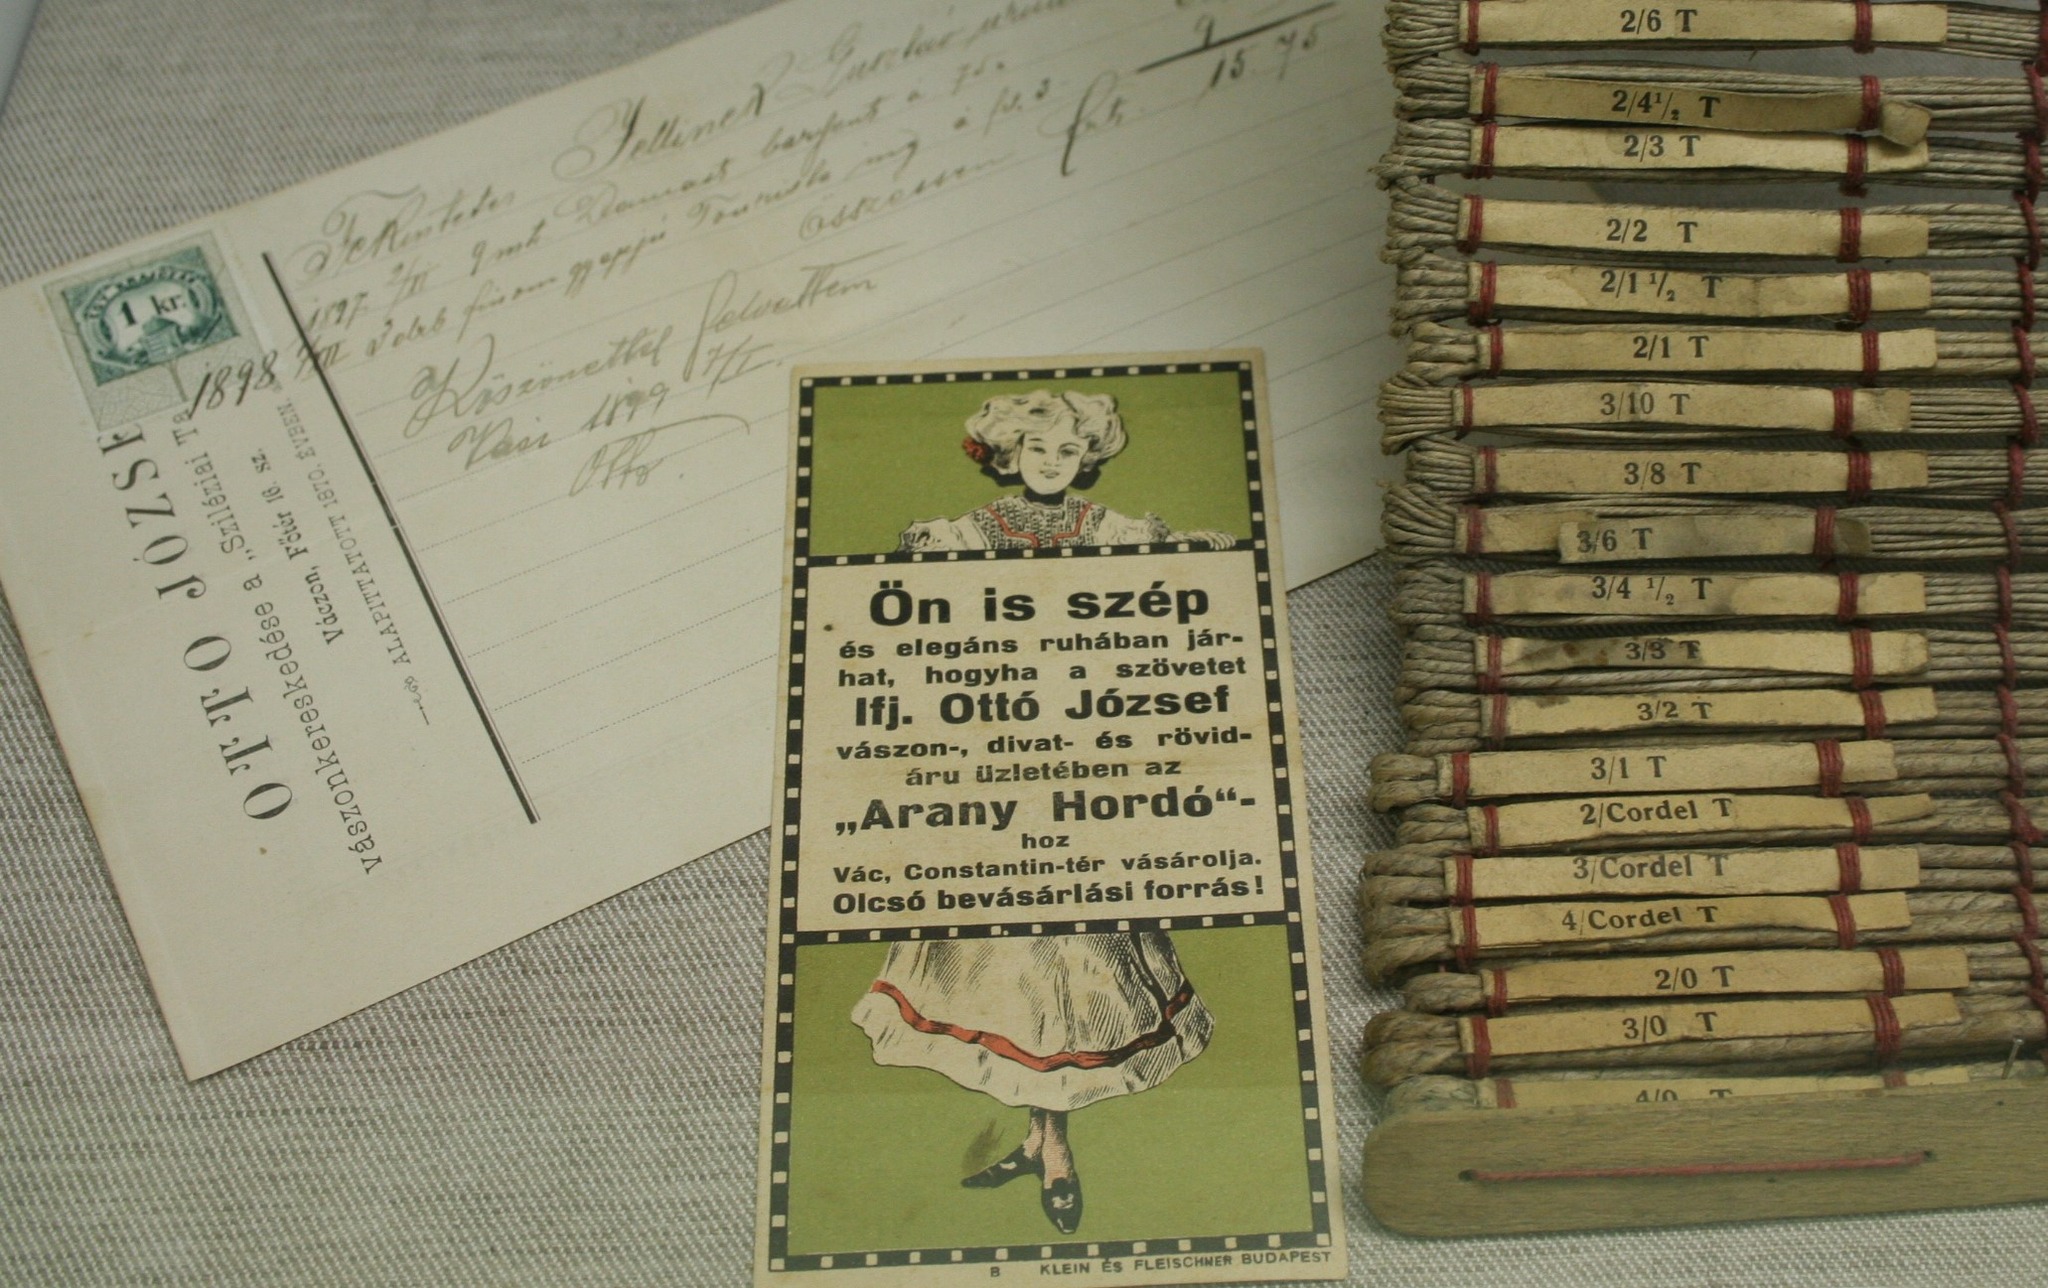 Tekintetes Jellinek Gusztáv
9
1897 9 mt Damast barchent à 75.
15.75
1898 2 drb finom gyapjú Tourista ing à frt. 3
összesen frt.
Köszönettel felvettem
Vácz 1899 7/I.
Otto.
1 kr.
OTTO JÓZSE
vászonkereskedése a „Sziléziai
Váczon, Főtér 16. sz.
ALAPÍTTATOTT 1870. ÉVBEN.
Ön is szép
és elegáns ruhában jár-
hat, hogyha a szövetet
Ifj. Ottó József
vászon-, divat- és rövid-
áru üzletében az
„Arany Hordó“-
hoz
Vác, Constantin-tér vásárolja.
Olcsó bevásárlási forrás!
B KLEIN ÉS FLEISCHNER BUDAPEST
2/6 T
2/4½ T
2/3 T
2/2 T
2/1 ½ T
2/1 T
3/10 T
3/8 T
3/6 T
3/4 ½ T
3/3 T
3/2 T
3/1 T
2/Cordel T
3/Cordel T
4/Cordel T
2/0 T
3/0 T
4/0 T